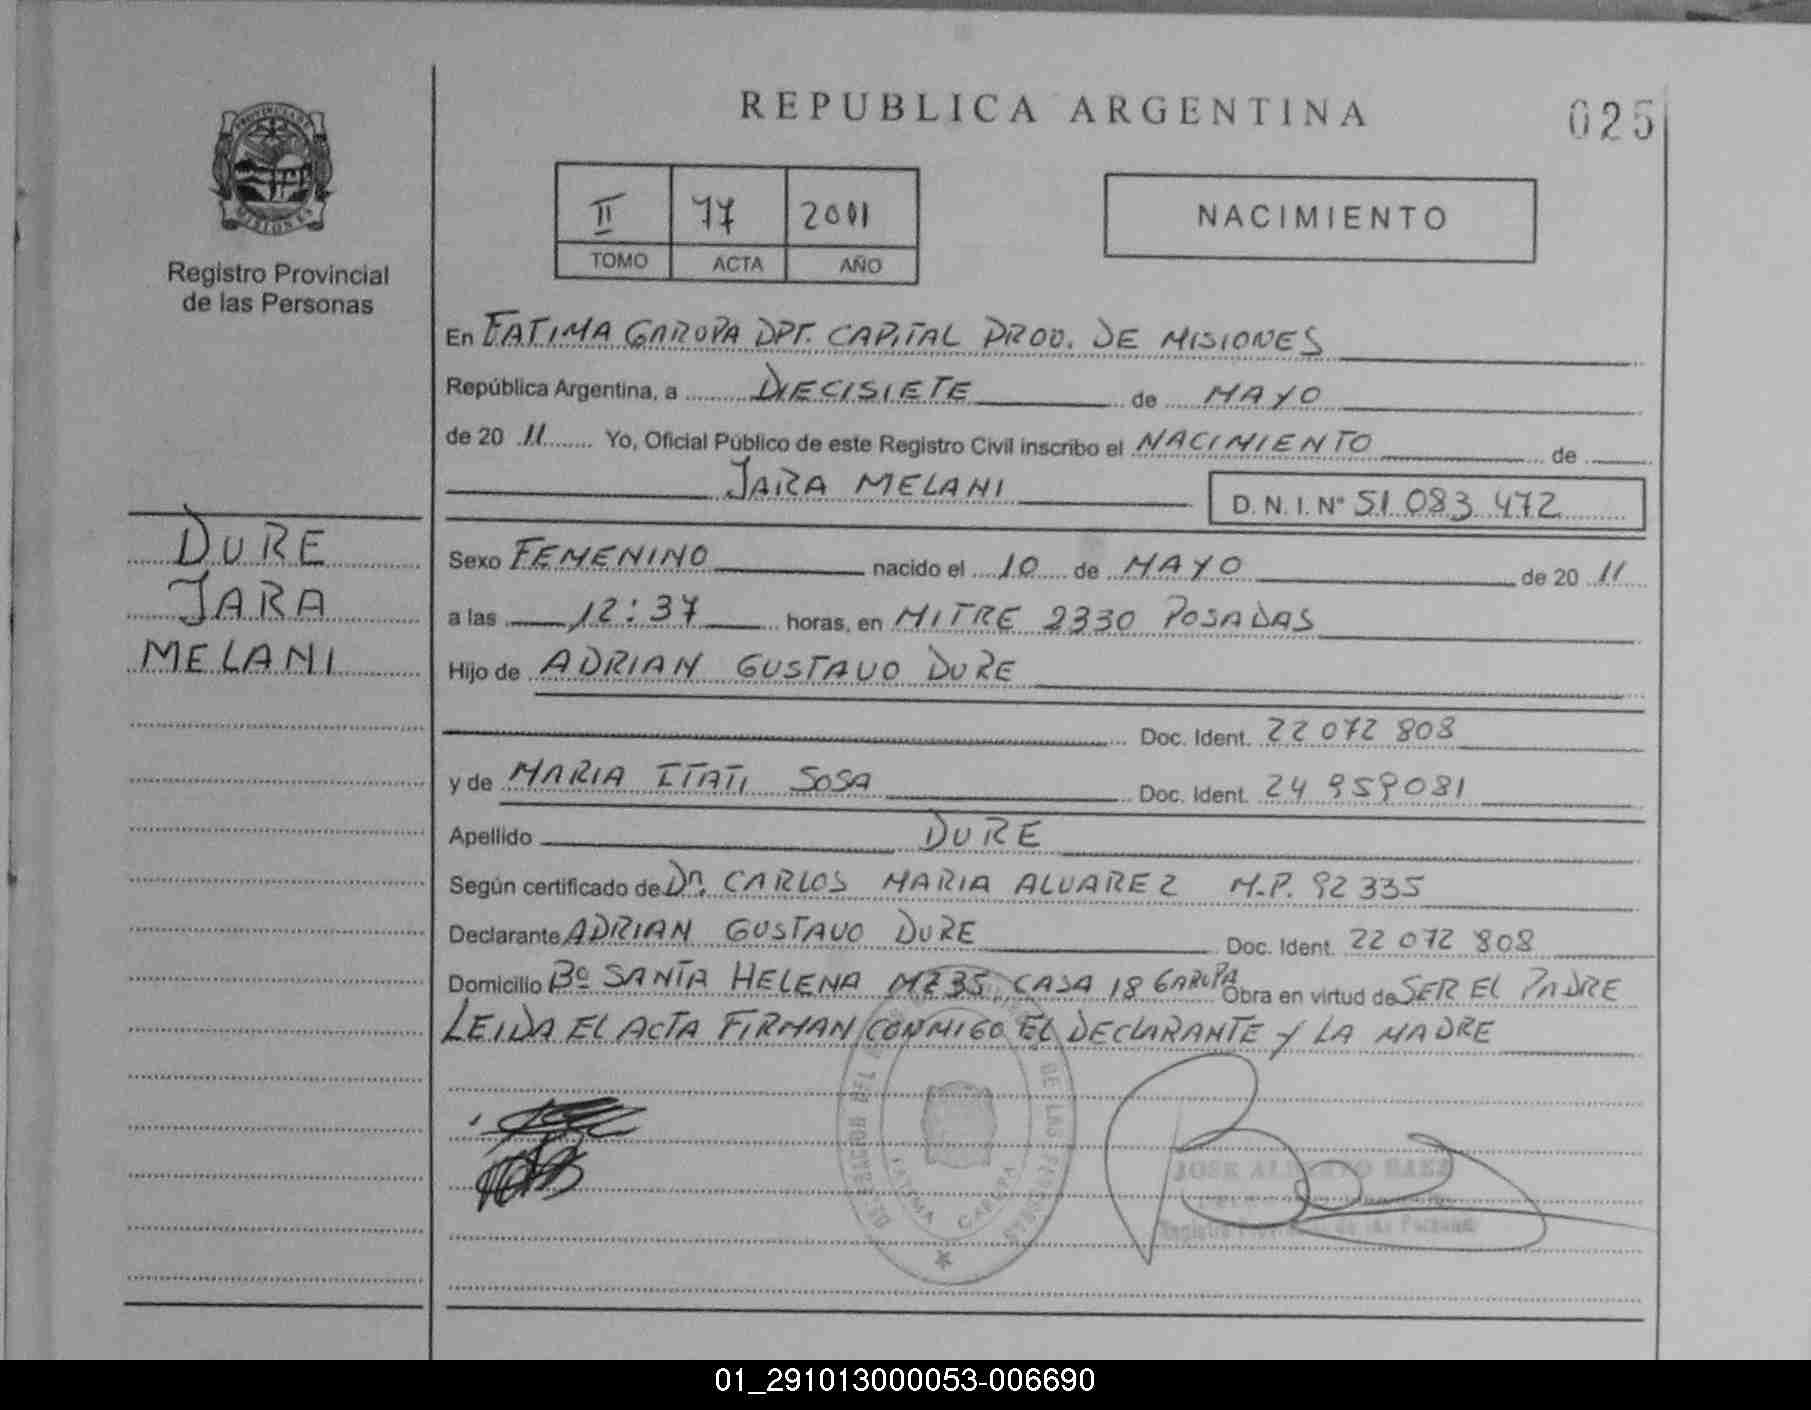 PROVINCIA DE
MISIONES
Registro Provincial
de las Personas
DURE
JARA
MELANI
REPUBLICA ARGENTINA
025
II 77 2011
TOMO ACTA AÑO
NACIMIENTO
En FATIMA GARUPA DPT. CAPITAL PROV. DE MISIONES
República Argentina, a DIECISIETE de MAYO
de 20 11 Yo, Oficial Público de este Registro Civil inscribo el NACIMIENTO de
JARA MELANI D.N.I. Nº 51 083 472
Sexo FEMENINO nacido el 10 de MAYO de 20 11
a las 12:37 horas, en MITRE 2330 POSADAS
Hijo de ADRIAN GUSTAVO DURE
Doc. Ident. 22 072 808
y de MARIA ITATI SOSA Doc. Ident. 24 959081
Apellido DURE
Según certificado de Dr. CARLOS MARIA ALVAREZ M.P. 92 335
Declarante ADRIAN GUSTAVO DURE Doc. Ident. 22 072 808
Domicilio Bº SANTA HELENA MZ 35 CASA 18 GARUPA Obra en virtud de SER EL PADRE
LEIDA EL ACTA FIRMAN CONMIGO EL DECLARANTE Y LA MADRE
DE LAS PERSONAS
FATIMA GARUPA
JOSE ALBERTO BAEZ
Registro Provincial de las Personas
01_291013000053-006690